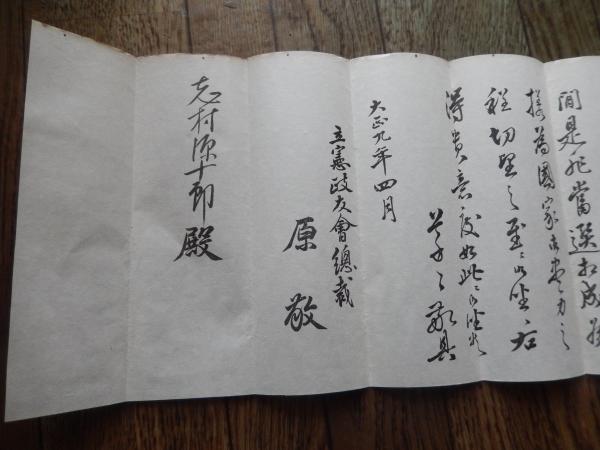 間是非當選相成候
様為國家御盡力之
程切望之至ニ御坐候右
得貴意度如此ニ御坐候
草々敬具
大正九年四月
立憲政友會總裁
原敬
志村源十郎殿